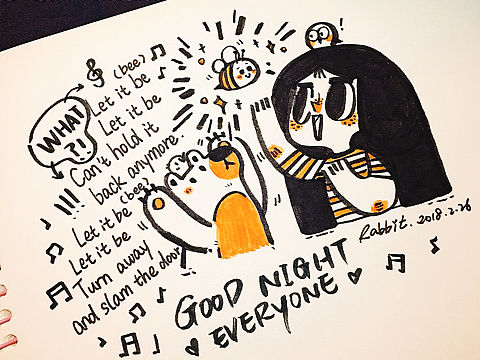 WHAT?!
(bee)
Let it be
Let it be
Can't hold it
back anymore.
(bee)
Let it be
Let it be
Turn away
and slam the door
!
Rabbit. 2018.2.26
GOOD NIGHT
EVERYONE